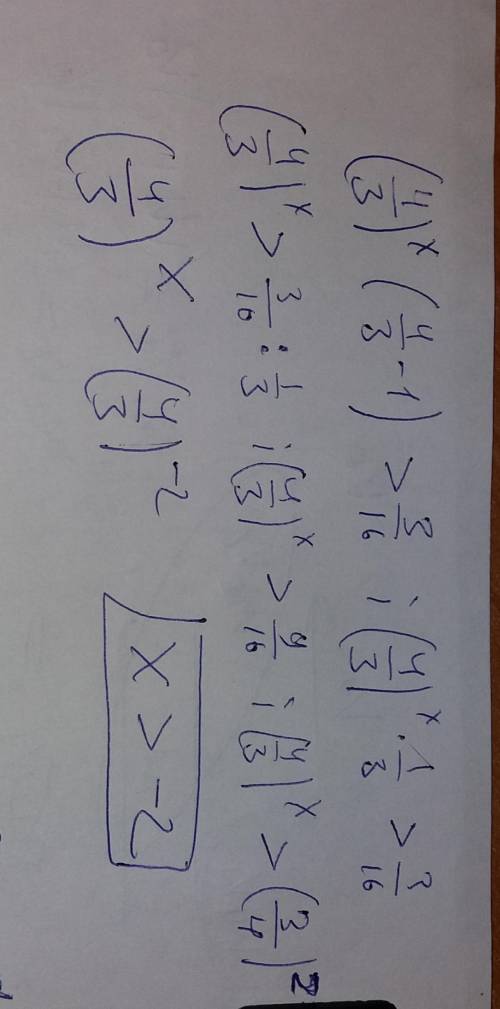 (4/3)^x (4/3 - 1) > 3/16 ; (4/3)^x · 1/3 > 3/16
(4/3)^x > 3/16 : 1/3 ; (4/3)^x > 9/16 ; (4/3)^x > (3/4)^2
(4/3)^x > (4/3)^-2 x > -2